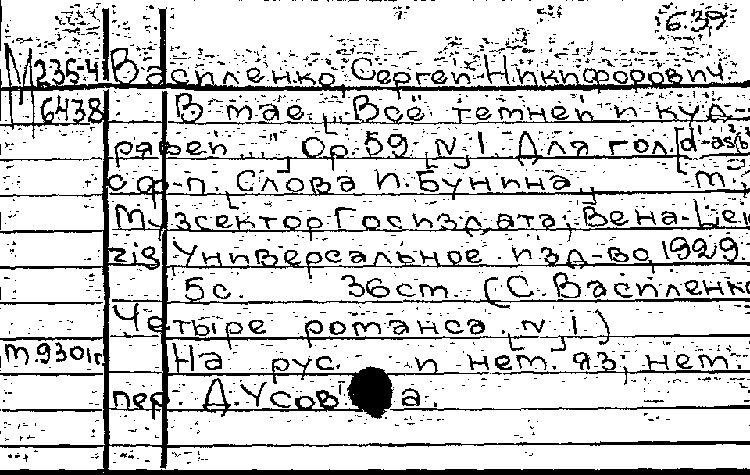 6.39
М 235-4 Василенко, Сергей Никифорович.
6438 В мае. „Всё темней и куд-
рявей...“ Ор. 59 N 1. Для гол. [d¹-as²]
с ф-п. Слова И. Бунина. м.,
Музсектор Госиздата; Вена-Lei
zig Универсальное изд-во, 1929.
5с. 36см. (С. Василенко
Четыре романса. N 1)
м.930 На рус. и нем. яз; нем.
пер. Д. Усова.